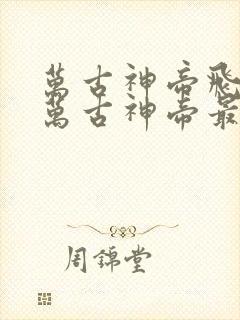 萬古神帝飛
萬古神帝最
周錦堂